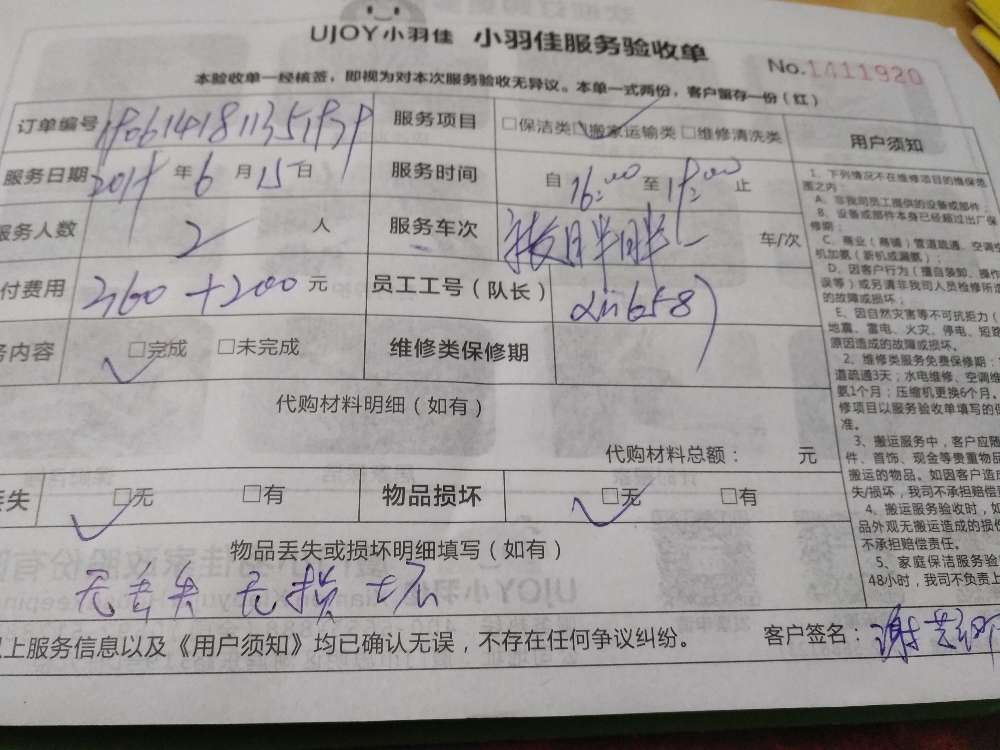 UJOY小羽佳 小羽佳服务验收单
No.1411920
本验收单一经核签，即视为对本次服务验收无异议。本单一式两份，客户留存一份（红）
订单编号 服务项目 □保洁类 □搬家运输类 □维修清洗类
服务日期 年 6 月 15 日 服务时间 自 16:00 至 止
服务人数 2 人 服务车次 车/次
付费用 360+200 元 员工工号（队长）
务内容 □完成 □未完成 维修类保修期
代购材料明细（如有）
代购材料总额： 元
丢失 □无 □有 物品损坏 □无 □有
物品丢失或损坏明细填写（如有）
无丢失 无损坏
上服务信息以及《用户须知》均已确认无误，不存在任何争议纠纷。 客户签名：
用户须知
1、下列情况不在维修项目的维保范
围之内：
A、非我司员工提供的设备或部件；
B、设备或部件本身已经超过出厂保
修期；
C、商业（商铺）管道疏通、空调
机加氨（新机或漏氨）；
D、因客户行为（擅自装卸、操作
误等）或另请非我司人员检修所
的故障或损坏；
E、因自然灾害等不可抗拒力（
地震、雷电、火灾、停电、短路
原因造成的故障或损坏。
2、维修类服务免费保修期：
道疏通3天；水电维修、空调维
氨1个月；压缩机更换6个月。
修项目以服务验收单填写的保
准。
3、搬运服务中，客户应随
件、首饰、现金等贵重物品
搬运的物品。如因客户造成
失/损坏，我司不承担赔偿
4、搬运服务验收时，如
品外观无搬运造成的损
不承担赔偿责任。
5、家庭保洁服务验
48小时，我司不负责上